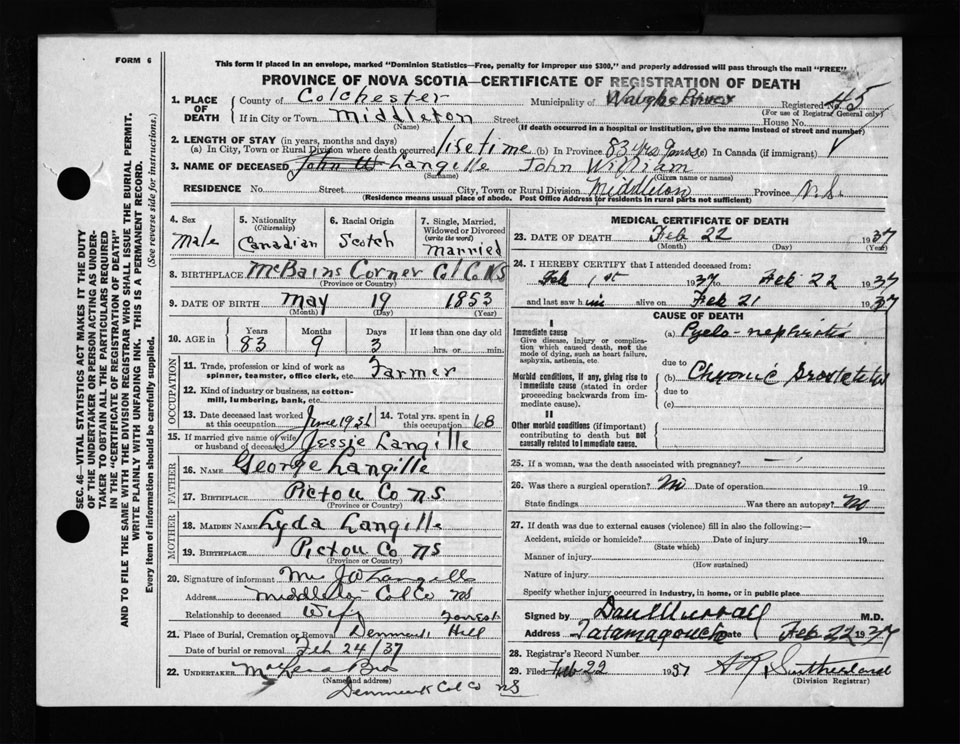 FORM 6
This form if placed in an envelope, marked "Dominion Statistics—Free, penalty for improper use $300," and properly addressed will pass through the mail "FREE"
PROVINCE OF NOVA SCOTIA—CERTIFICATE OF REGISTRATION OF DEATH
1. PLACE OF DEATH County of Colchester Municipality of Waughs River Registered No. 45
(For use of Registrar General only)
If in City or Town Middleton Street House No.
(Name) (If death occurred in a hospital or institution, give the name instead of street and number)
2. LENGTH OF STAY (in years, months and days)
(a) In City, Town or Rural Division where death occurred lifetime (b) In Province 83 yrs 9 mos (c) In Canada (if immigrant)
3. NAME OF DECEASED John W Langille John William
(Surname) (Given name or names)
RESIDENCE No. Street City, Town or Rural Division Middleton Province N.S.
(Residence means usual place of abode. Post Office Address for residents in rural parts not sufficient)
4. Sex Male
5. Nationality (Citizenship) Canadian
6. Racial Origin Scotch
7. Single, Married, Widowed or Divorced (write the word) Married
8. BIRTHPLACE McBains Corner Col Co NS
(Province or Country)
9. DATE OF BIRTH May 19 1853
(Month) (Day) (Year)
10. AGE in Years 83 Months 9 Days 3 If less than one day old hrs. or min.
OCCUPATION
11. Trade, profession or kind of work as spinner, teamster, office clerk, etc. Farmer
12. Kind of industry or business, as cotton-mill, lumbering, bank, etc.
13. Date deceased last worked at this occupation June 1936
14. Total yrs. spent in this occupation 68
15. If married give name of wife or husband of deceased Jessie Langille
FATHER
16. NAME George Langille
17. BIRTHPLACE Pictou Co NS
(Province or Country)
MOTHER
18. MAIDEN NAME Lyda Langille
19. BIRTHPLACE Pictou Co NS
(Province or Country)
20. Signature of informant Mrs J W Langille
Address Middleton Col Co NS
Relationship to deceased Wife
21. Place of Burial, Cremation or Removal Denmark, Forrest Hill
Date of burial or removal Feb 24/37
22. UNDERTAKER Bros
(Name and address)
Denmark Col Co NS
MEDICAL CERTIFICATE OF DEATH
23. DATE OF DEATH Feb 22 1937
(Month) (Day) (Year)
24. I HEREBY CERTIFY that I attended deceased from:
Feb 1st 1937 to Feb 22 1937
and last saw him alive on Feb 21 1937
CAUSE OF DEATH
I
Immediate cause
Give disease, injury or complication which caused death, not the mode of dying, such as heart failure, asphyxia, asthenia, etc.
(a) Pyelo-nephritis
due to
Morbid conditions, if any, giving rise to immediate cause (stated in order proceeding backwards from immediate cause).
(b) Chronic Prostatitis
due to
(c)
II
Other morbid conditions (if important) contributing to death but not causally related to immediate cause.
25. If a woman, was the death associated with pregnancy?
26. Was there a surgical operation? No Date of operation 19
State findings Was there an autopsy? No
27. If death was due to external causes (violence) fill in also the following:—
Accident, suicide or homicide? Date of injury 19
(State which)
Manner of injury
(How sustained)
Nature of injury
Specify whether injury occurred in industry, in home, or in public place
Signed by Dan Murray M.D.
Address Tatamagouche Date Feb 22 1937
28. Registrar's Record Number
29. Filed Feb 22 1937 Sutherland
(Division Registrar)
SEC. 46—VITAL STATISTICS ACT MAKES IT THE DUTY
OF THE UNDERTAKER OR PERSON ACTING AS UNDER-
TAKER TO OBTAIN ALL THE PARTICULARS REQUIRED
IN THE "CERTIFICATE OF REGISTRATION OF DEATH"
AND TO FILE THE SAME WITH THE DIVISION REGISTRAR WHO SHALL ISSUE THE BURIAL PERMIT.
WRITE PLAINLY WITH UNFADING INK. THIS IS A PERMANENT RECORD.
Every item of information should be carefully supplied. (See reverse side for instructions.)